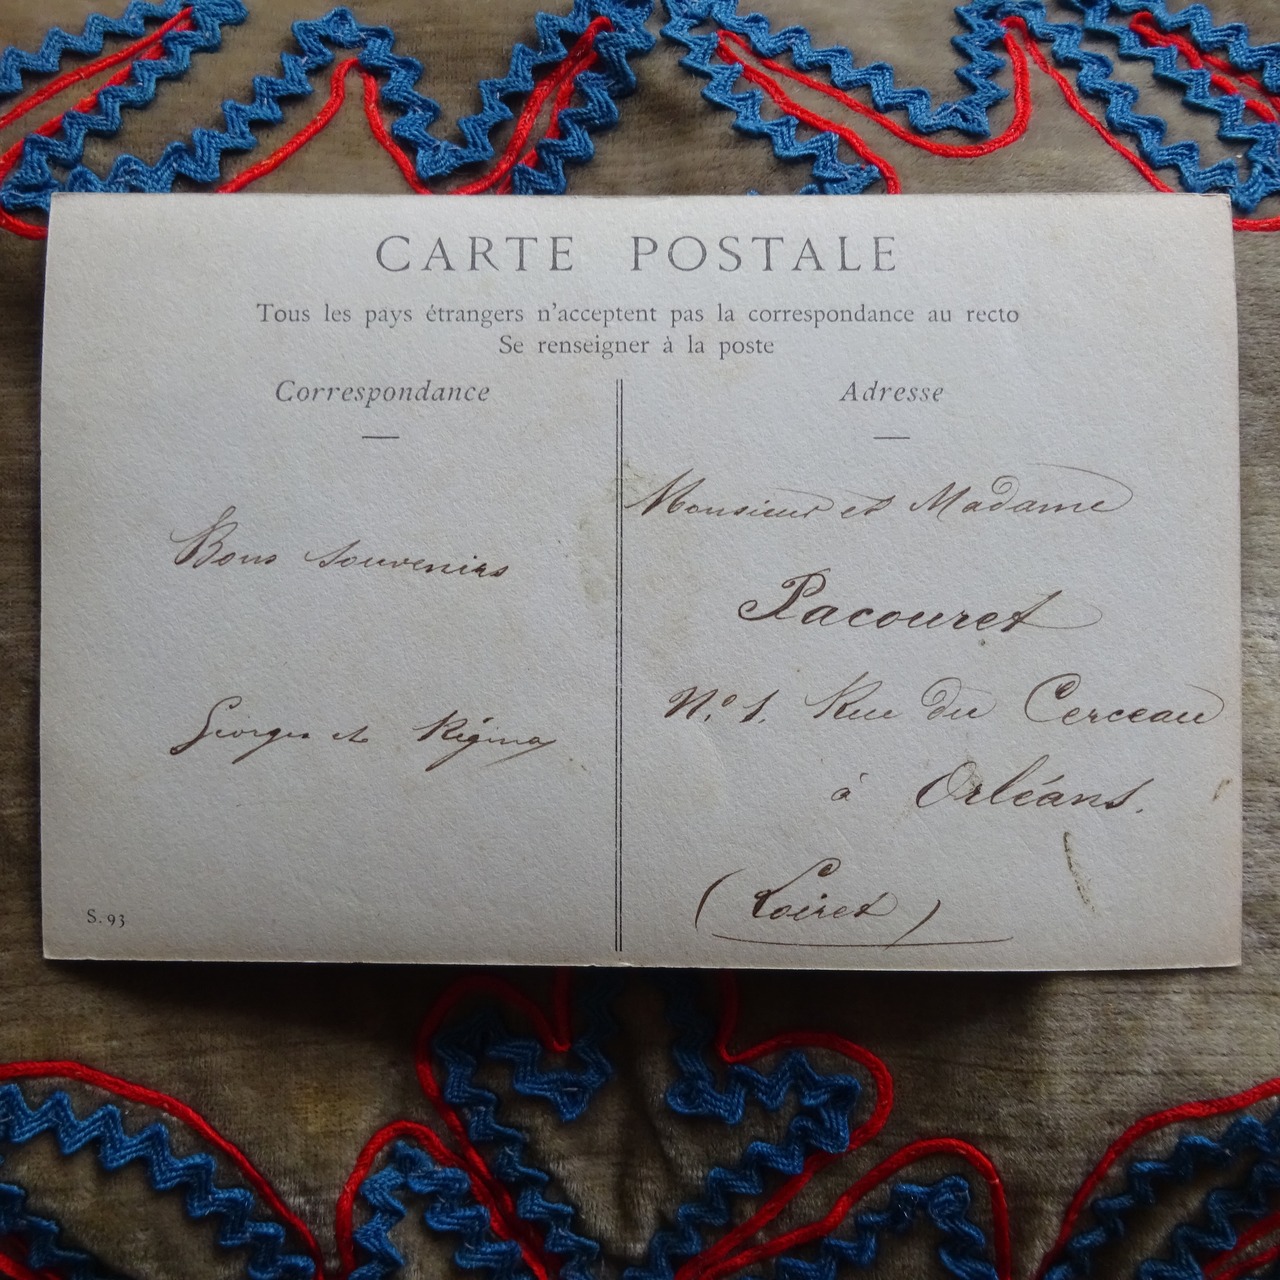 CARTE POSTALE
Tous les pays étrangers n'acceptent pas la correspondance au recto
Se renseigner à la poste
Correspondance
Bons souvenirs
Georges et Régina
S. 93
Adresse
Monsieur et Madame
Pacouret
N.º 1. Rue du Cerceau
à Orléans.
(Loiret)